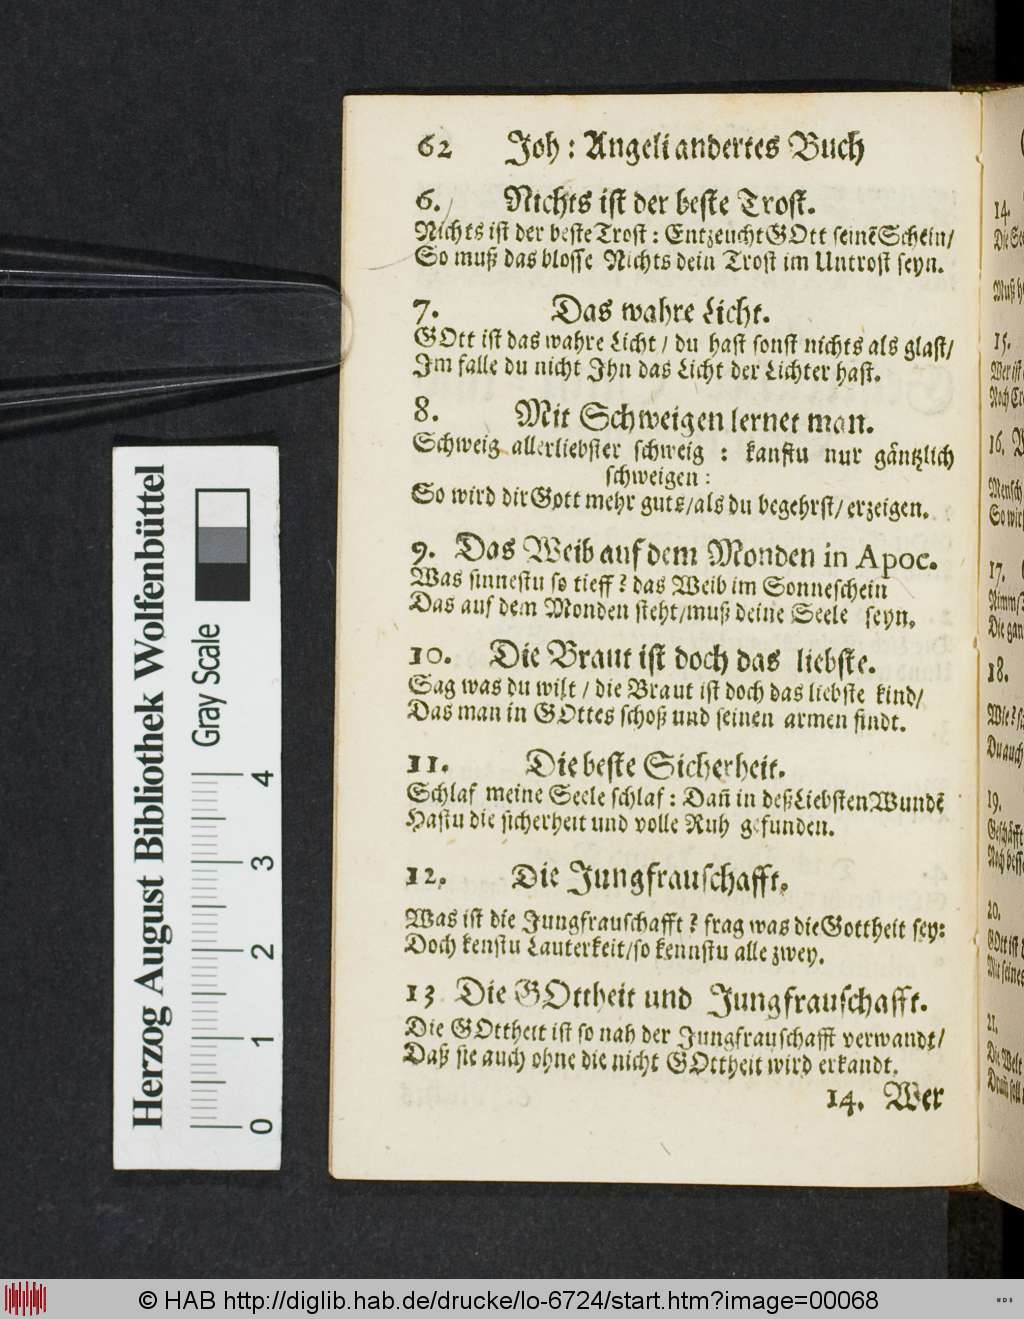 62 Joh: Angeli andertes Buch
6. Nichts ist der beste Trost.
Nichts ist der beste Trost: Entzeucht GOtt seinē Schein/
So muß das blosse Nichts dein Trost im Untrost seyn.
7. Das wahre Licht.
GOtt ist das wahre Licht / du hast sonst nichts als glast/
Im falle du nicht Ihn das Licht der Lichter hast.
8. Mit Schweigen lernet man.
Schweig allerliebster schweig : kanstu nur gäntzlich
schweigen:
So wird dir Gott mehr guts/als du begehrst/erzeigen.
9. Das Weib auf dem Monden in Apoc.
Was sinnestu so tieff? das Weib im Sonneschein
Das auf dem Monden steht/muß deine Seele seyn.
10. Die Braut ist doch das liebste.
Sag was du wilt / die Braut ist doch das liebste kind/
Das man in GOttes schoß und seinen armen findt.
11. Die beste Sicherheit.
Schlaf meine Seele schlaf: Dañ in deß Liebsten Wundē
Hastu die sicherheit und volle Ruh gefunden.
12. Die Jungfrauschafft.
Was ist die Jungfrauschafft? frag was die Gottheit sey:
Doch kenstu Lauterkeit/so kennstu alle zwey.
13 Die GOttheit und Jungfrauschafft.
Die GOttheit ist so nah der Jungfrauschafft verwandt/
Daß sie auch ohne die nicht GOttheit wird erkandt.
14. Wer
14.
15.
16.
17.
18.
19.
20.
21.
Herzog August Bibliothek Wolfenbüttel
Gray Scale
0 1 2 3 4
© HAB http://diglib.hab.de/drucke/lo-6724/start.htm?image=00068